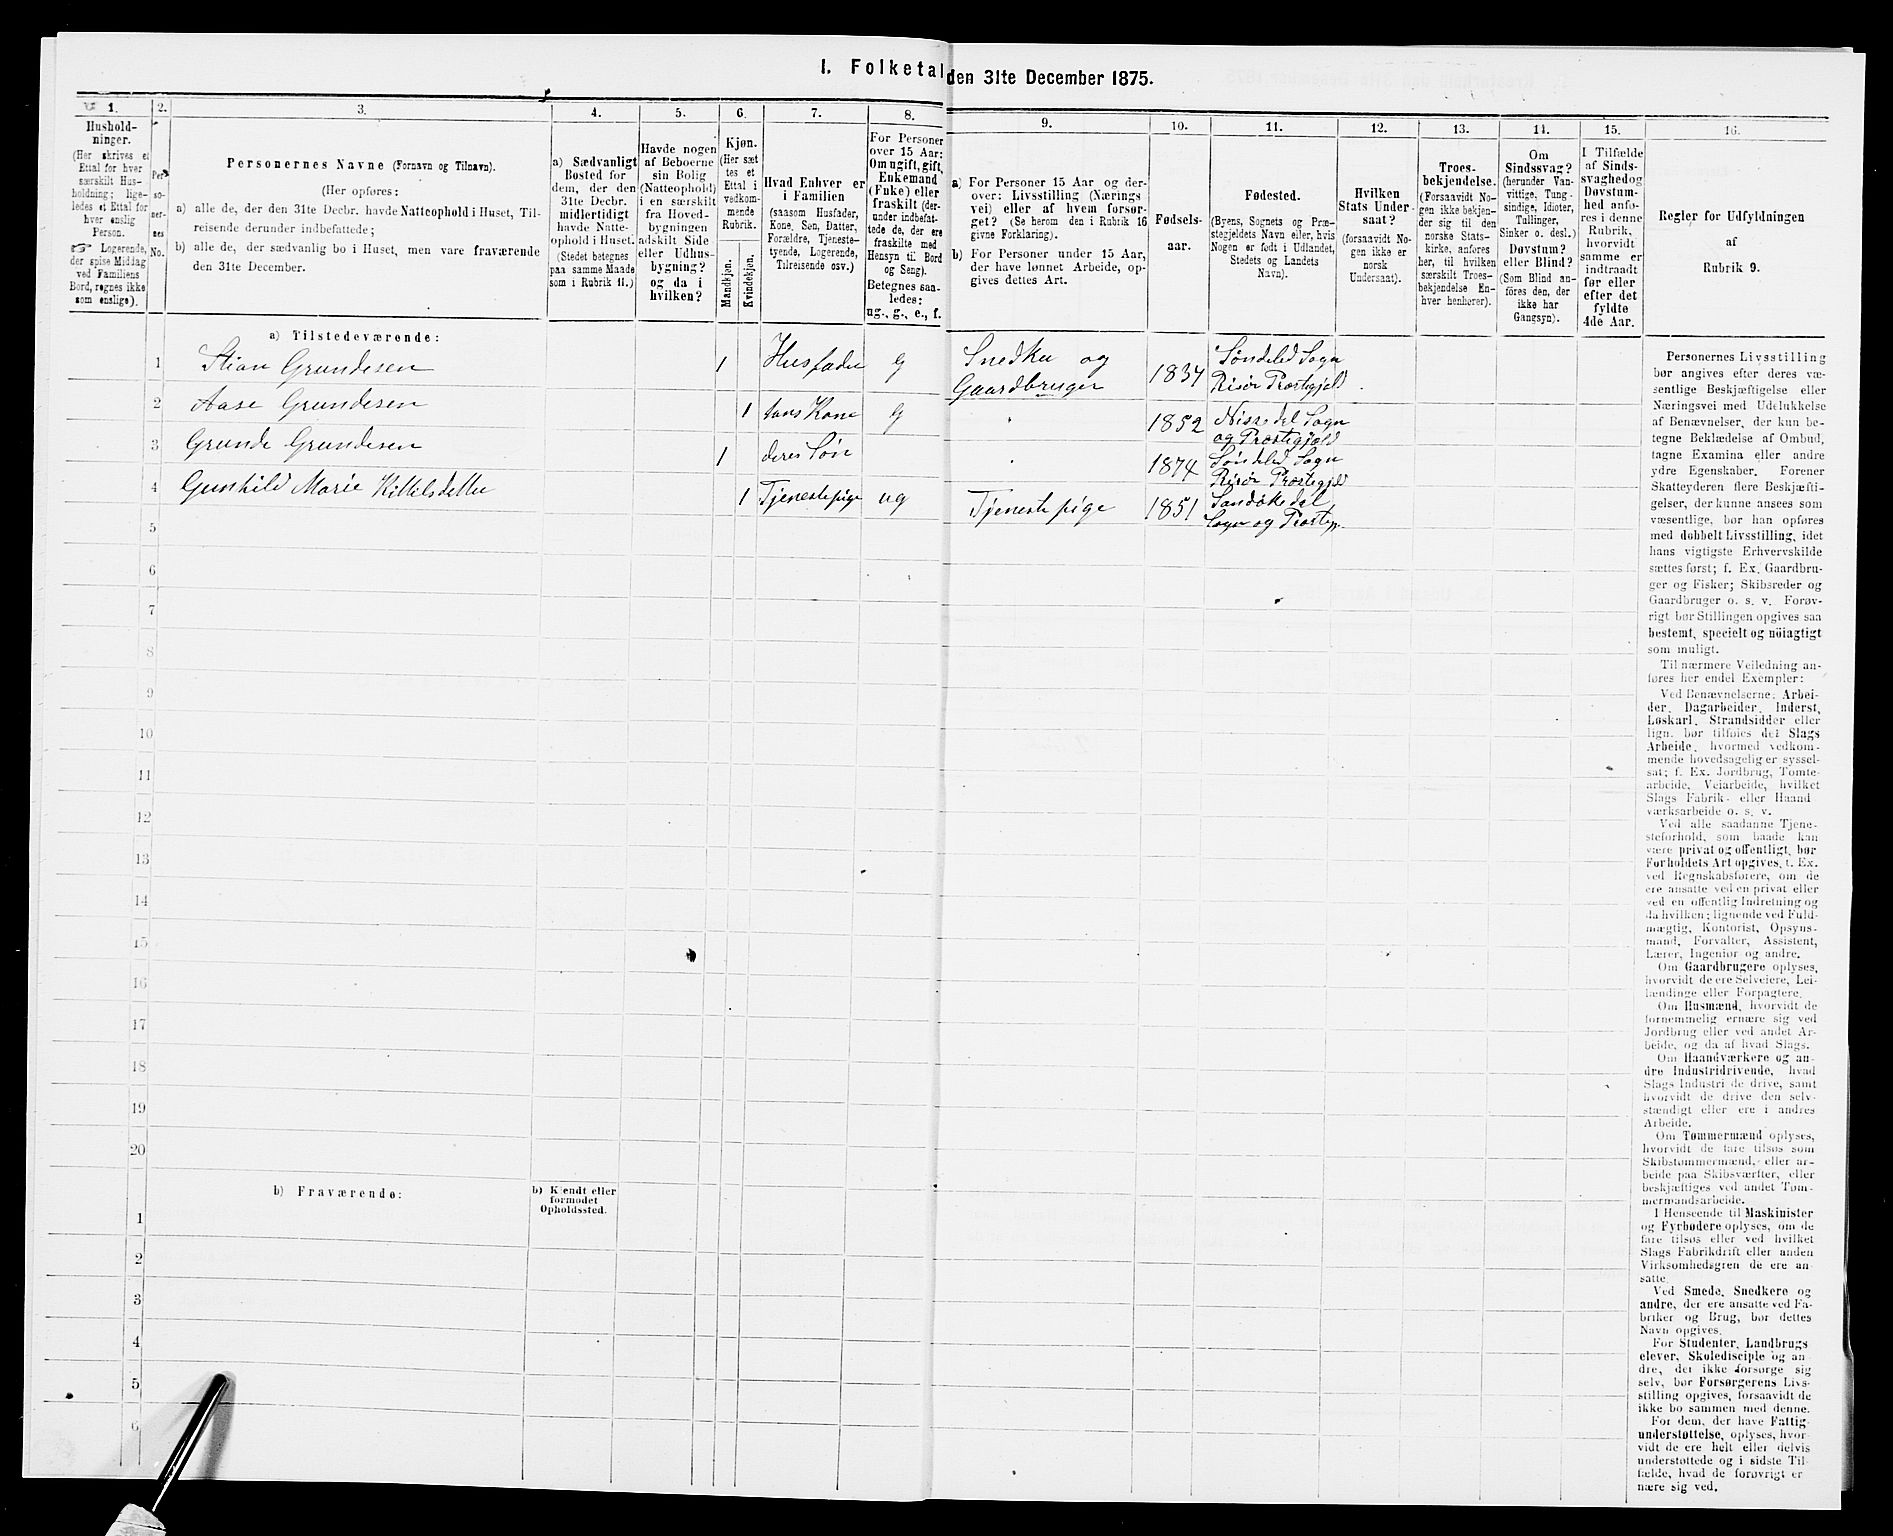 I. Folketal den 31te December 1875.
1.
Hushold-
ninger.
(Her skrives et
Ettal for hver
særskilt Hus-
holdning; lige-
ledes et Ettal for
hver enslig
Person.
☞ Logerende,
der spise Middag
ved Familiens
Bord, regnes ikke
som enslige).
2.
Per-
so-
ner-
nes
No.
3.
Personernes Navne (Fornavn og Tilnavn).
(Her opføres:
a) alle de, der den 31te Decbr. havde Natteophold i Huset, Til-
reisende derunder indbefattede;
b) alle de, der sædvanlig bo i Huset, men vare fraværende
den 31te December.
4.
a) Sædvanligt
Bosted for
dem, der den
31te Decbr.
midlertidigt
havde Natte-
ophold i Huset.
(Stedet betegnes
paa samme Maade
som i Rubrik 11.)
5.
Havde nogen
af Beboerne
sin Bolig
(Natteophold)
i en særskilt
fra Hoved-
bygningen
adskilt Side-
eller Udhus-
bygning?
og da i
hvilken?
6.
Kjøn.
(Her sæt-
tes et
Ettal i
vedkom-
mende
Rubrik.
Mandkjøn.
Kvindekjøn.
7.
Hvad Enhver er
i Familien
(saasom Husfader,
Kone, Søn, Datter,
Forældre, Tjeneste-
tyende, Logerende,
Tilreisende osv.)
8.
For Personer
over 15 Aar:
Om ugift, gift,
Enkemand
(Enke) eller
fraskilt (der-
under indbefat-
tede de, der ere
fraskilte med
Hensyn til Bord
og Seng).
Betegnes saa-
ledes:
ug., g., e., f.
9.
a) For Personer 15 Aar og der-
over: Livsstilling (Nærings-
vei) eller af hvem forsør-
get? (Se herom den i Rubrik 16
givne Forklaring).
b) For Personer under 15 Aar,
der have lønnet Arbeide, op-
gives dettes Art.
10.
Fødsels-
aar.
11.
Fødested.
(Byens, Sognets og Præ-
stegjeldets Navn eller, hvis
Nogen er født i Udlandet,
Stedets og Landets
Navn).
12.
Hvilken
Stats Under-
saat?
(forsaavidt No-
gen ikke er
norsk
Undersaat).
13.
Troes-
bekjendelse.
(Forsaavidt No-
gen ikke bekjen-
der sig til den
norske Stats-
kirke, anføres
her, til hvilken
særskilt Troes-
bekjendelse En-
hver henhører).
14.
Om
Sindssvag?
(herunder Van-
vittige, Tung-
sindige, Idioter,
Tullinger,
Sinker o. desl.)
Døvstum?
eller Blind?
(Som Blind an-
føres den, der
ikke har
Gangsyn).
15.
I Tilfælde
af Sinds-
svaghed og
Døvstum-
hed anfø-
res i denne
Rubrik,
hvorvidt
samme er
indtraadt
før eller
efter det
fyldte
4de Aar.
16.
Regler for Udfyldningen
af
Rubrik 9.
a) Tilstedeværende:
1 Stian Grundesen 1 Husfader g Snedker og Gaardbruger 1834 Søndeled Sogn Risør Præstegjeld
2 Aase Grundesen 1 hans Kone g " 1852 Nissedel Sogn og Præstegjeld
3 Grunde Grundesen 1 deres Søn " 1874 Søndeled Sogn Risør Præstegjeld
4 Gunhild Marie Kittilsdatter 1 Tjenestepige ug Tjenestepige 1851 Sandøkedal Sogn og Præstegj.
5
6
7
8
9
10
11
12
13
14
15
16
17
18
19
20
b) Fraværende:
b) Kjendt eller
formodet
Opholdssted.
1
2
3
4
5
6
Personernes Livsstilling
bør angives efter deres væ-
sentlige Beskjæftigelse eller
Næringsvei med Udelukkelse
af Benævnelser, der kun be-
tegne Beklædelse af Ombud,
tagne Examina eller andre
ydre Egenskaber. Forener
Skatteyderen flere Beskjæfti-
gelser, der kunne ansees som
væsentlige, bør han opføres
med dobbelt Livsstilling, idet
hans vigtigste Erhvervskilde
sættes først; f. Ex. Gaardbru-
ger og Fisker; Skibsreder og
Gaardbruger o. s. v. Forøv-
rigt bør Stillingen opgives saa
bestemt, specielt og nøiagtigt
som muligt.
Til nærmere Veiledning an-
føres her endel Exempler:
Ved Benævnelserne: Arbei-
der, Dagarbeider, Inderst,
Løskarl, Strandsidder eller
lign. bør tilføies det Slags
Arbeide, hvormed vedkom-
mende hovedsagelig er syssel-
sat; f. Ex. Jordbrug, Tomte-
arbeide, Veiarbeide, hvilket
Slags Fabrik- eller Haand-
værksarbeide o. s. v.
Ved alle saadanne Tjene-
steforhold, som baade kan
være privat og offentligt, bør
Forholdets Art opgives, f. Ex.
ved Regnskabsførere, om de
ere ansatte ved en privat eller
ved en offentlig Indretning og
da hvilken; lignende ved Fuld-
mægtig, Kontorist, Opsyns-
mand, Forvalter, Assistent,
Lærer, Ingeniør og andre.
Om Gaardbrugere oplyses,
hvorvidt de ere Selveiere, Lei-
lændinge eller Forpagtere.
Om Husmænd, hvorvidt de
fornemmelig ernære sig ved
Jordbrug eller ved andet Ar-
beide, og da af hvad Slags.
Om Haandværkere og an-
dre Industridrivende, hvad
Slags Industri de drive, samt
hvorvidt de drive den selv-
stændigt eller ere i andres
Arbeide.
Om Tømmermænd oplyses,
hvorvidt de fare tilsøs som
Skibstømmermænd, eller ar-
beide paa Skibsværfter, eller
beskjæftiges ved andet Tøm-
mermandsarbeide.
I Henseende til Maskinister
og Fyrbødere oplyses, om de
fare tilsøs eller ved hvilket
Slags Fabrikdrift eller anden
Virksomhedsgren de ere an-
satte.
Ved Smede, Snedkere og
andre, der ere ansatte ved Fa-
briker og Brug, bør dettes
Navn opgives.
For Studenter, Landbrugs-
elever, Skoledisciple og an-
dre, der ikke forsørge sig
selv, bør Forsørgerens Livs-
stilling opgives, forsaavidt de
ikke bo sammen med denne.
For dem, der have Fattig-
understøttelse, oplyses, hvor-
vidt de ere helt eller delvis
understøttede og i sidste Til-
fælde, hvad de forøvrigt er-
nære sig ved.